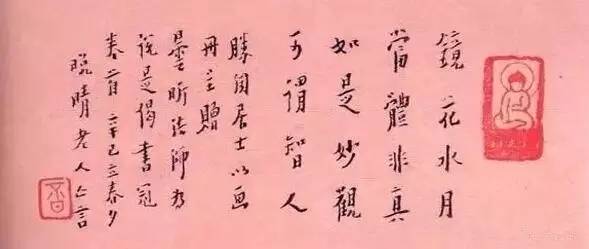 鏡花水月
當體非真
如是妙觀
可謂智人
勝居士以畫
冊贈
曇昕法師為
說是偈書冠
卷首 辛巳立春夕
晚晴老人亡言